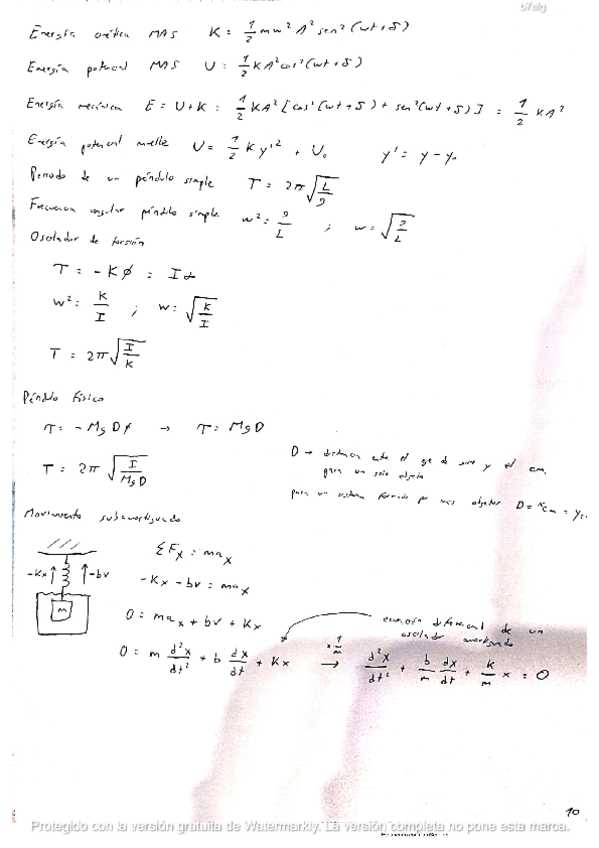 b7elg
Energía cinética MAS K = 1/2 mw² A² sen² (wt + δ)
Energía potencial MAS U = 1/2 KA² cos² (wt + δ)
Energía mecánica E = U + K = 1/2 KA² [cos² (wt + δ) + sen² (wt + δ)] = 1/2 KA²
Energía potencial muelle U = 1/2 K y'² + U₀ y' = y - y₀
Periodo de un péndulo simple T = 2π √(L/g)
Frecuencia angular péndulo simple w² = g/L ; w = √(g/L)
Oscilador de torsión
τ = -Kφ = Iα
w² = K/I ; w = √(K/I)
T = 2π √(I/K)
Péndulo físico
τ = -MgDφ → τ = MgD
T = 2π √(I/MgD)
D → distancia entre el eje de giro y el cm.
para un solo objeto
para un sistema formado por más objetos D = x_cm =
Movimiento subamortiguado
-Kx -bv
m
ΣFx = max
-Kx - bv = max
0 = max + bv + Kx
ecuación diferencial de un
oscilador amortiguado
0 = m d²x/dt² + b dx/dt + Kx x 1/m → d²x/dt² + b/m dx/dt + K/m x = 0
10
Protegido con la versión gratuita de Watermarkly. La versión completa no pone esta marca.